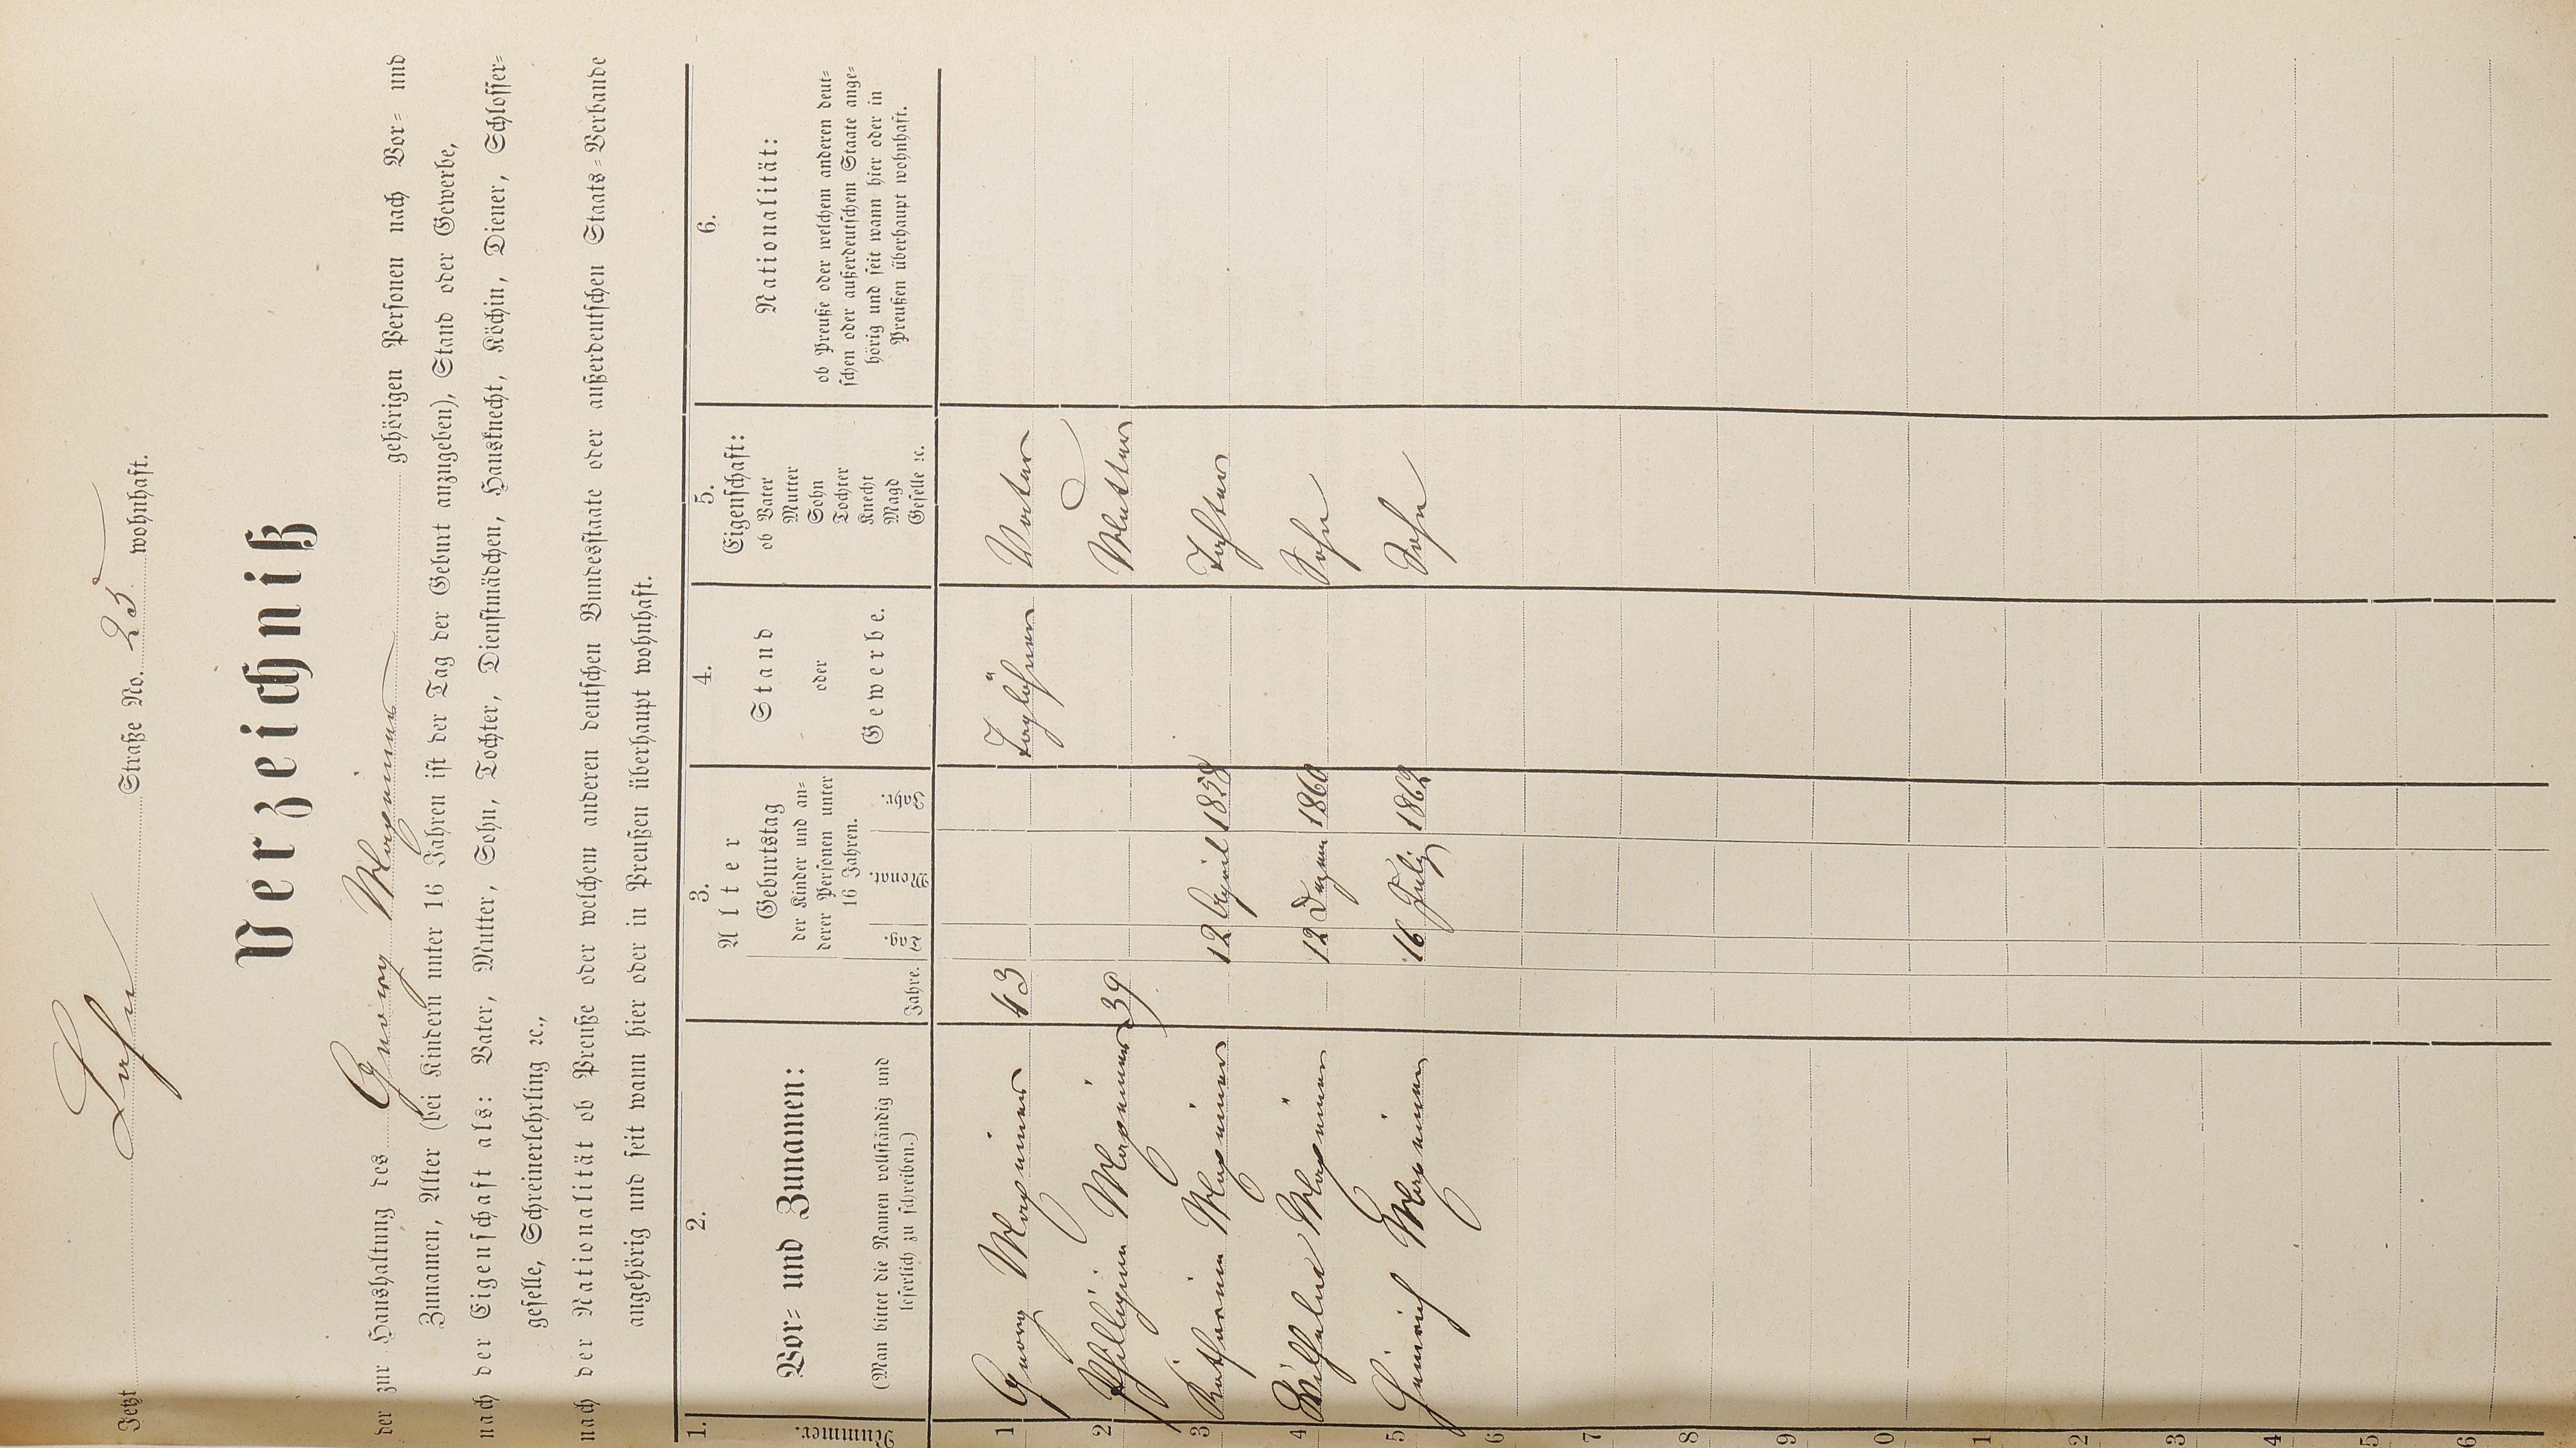 Jetzt Lahn Straße No. 25 wohnhaft.
Verzeichniß
der zur Haushaltung des Georg Wageiner gehörigen Personen nach Vor= und
Zunamen, Alter (bei Kindern unter 16 Jahren ist der Tag der Geburt anzugeben), Stand oder Gewerbe,
nach der Eigenschaft als: Vater, Mutter, Sohn, Tochter, Dienstmädchen, Hausknecht, Köchin, Diener, Schlosser=
geselle, Schreinerlehrling ꝛc.,
nach der Nationalität ob Preuße oder welchem anderen deutschen Bundesstaate oder außerdeutschen Staats=Verbande
angehörig und seit wann hier oder in Preußen überhaupt wohnhaft.
1. 2. 3. 4. 5. 6.
Nummer.
Vor= und Zunamen:
(Man bittet die Namen vollständig und
leserlich zu schreiben.)
Alter
Jahre.
Geburtstag
der Kinder und an=
derer Personen unter
16 Jahren.
Tag. Monat. Jahr.
Stand
oder
Gewerbe.
Eigenschaft:
ob Vater
Mutter
Sohn
Tochter
Knecht
Magd
Geselle ꝛc.
Nationalität:
ob Preuße oder welchem anderen deut=
schen oder außerdeutschem Staate ange=
hörig und seit wann hier oder in
Preußen überhaupt wohnhaft.
1 Georg Wageiner 43 Taglöhner Vater
2 Phillipine Wageiner 39 Mutter
3 Katharina Wageiner 12 April 1858 Tochter
4 Wilhelm Wageiner 12 Dezem 1860 Sohn
5 Heinrich Wageiner 16 Julij 1862 Sohn
6
7
8
9
0
1
2
3
4
5
6